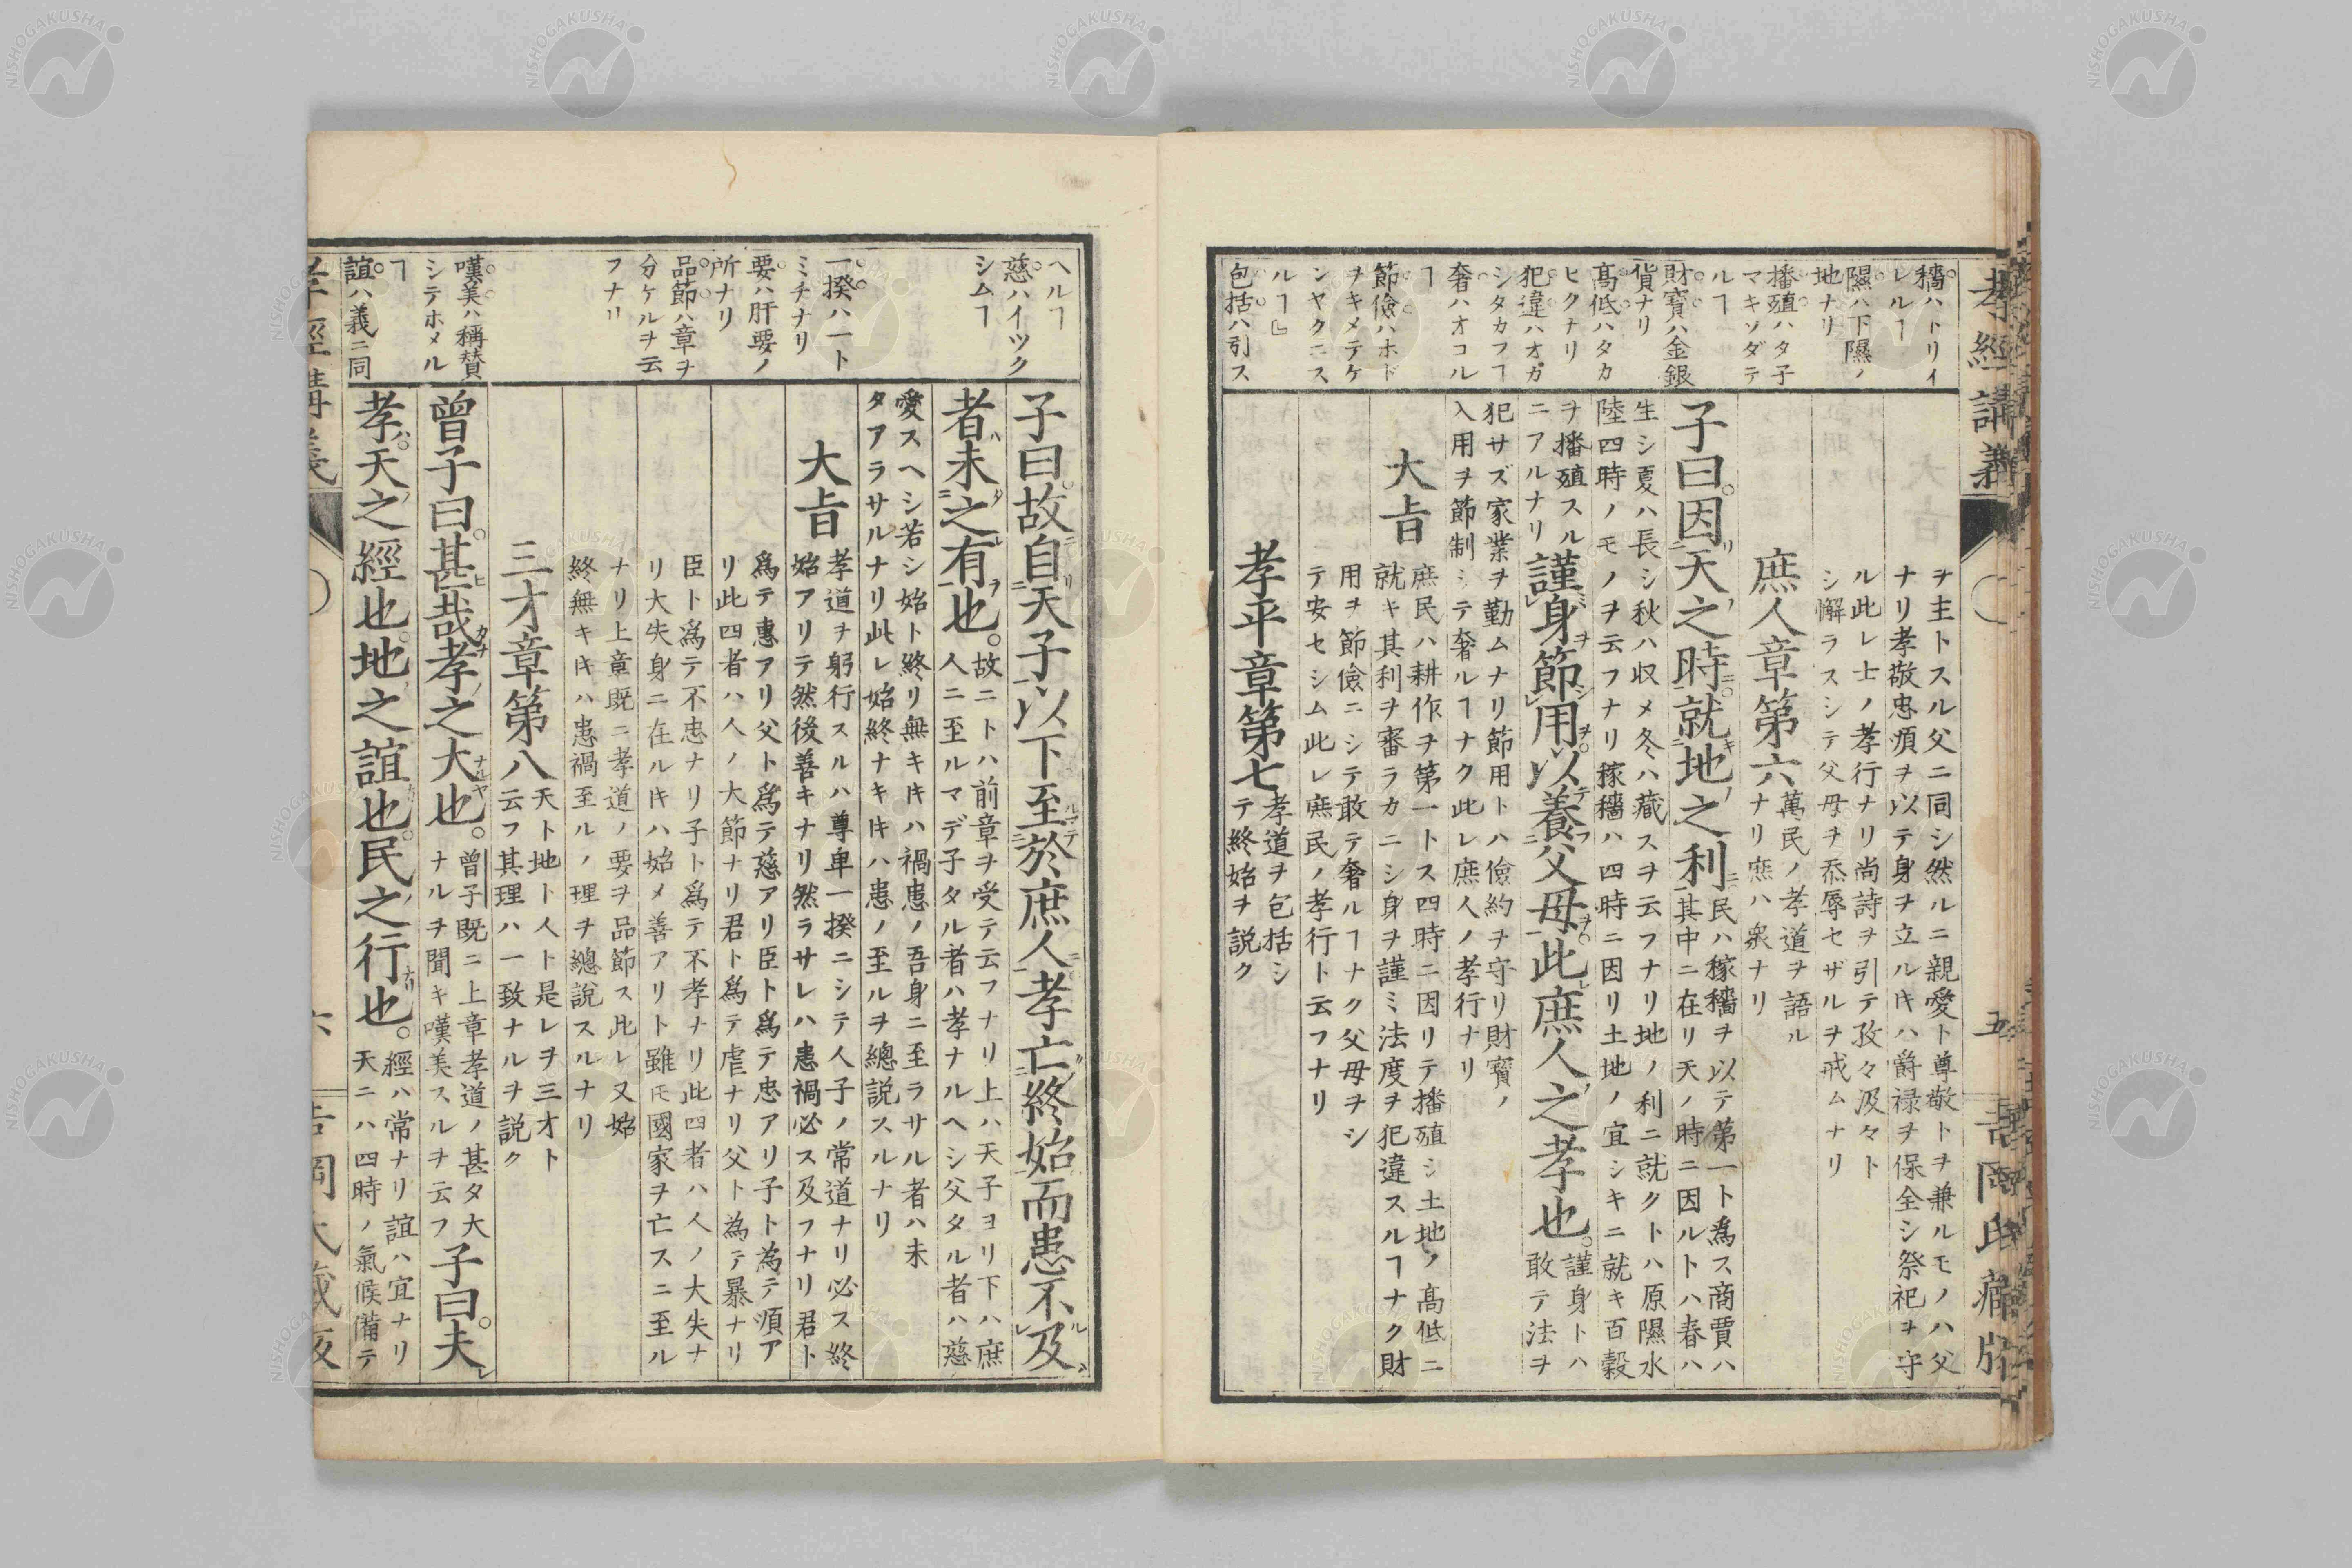 孝經講義
五
穡ハトリイ
レルヿ
隰ハ下隰ノ
地ナリ
播殖ハタ子
マキソダテ
ルヿ
財寶ハ金銀
貨ナリ
髙低ハタカ
ヒクナリ
犯違ハオカ
シタカフヿ
奢ハオコル
ヿ
節儉ハホド
ヲキメテケ
ンヤクニス
ルヿ
包括ハ引ス
ヲ主トスル父ニ同シ然ルニ親愛ト尊敬トヲ兼ルモノハ父
ナリ孝敬忠順ヲ以テ身ヲ立ルキハ爵禄ヲ保全シ祭祀ヲ守
ル此レ士ノ孝行ナリ尚詩ヲ引テ孜々汲々ト
シ懈ラスシテ父母ヲ忝辱セザルヲ戒ムナリ
庶人章第六
萬民ノ孝道ヲ語ル
ナリ庶ハ衆ナリ
子曰因天之時就地之利
民ハ稼穡ヲ以テ第一ト爲ス商賈ハ
其中ニ在リ天ノ時ニ因ルトハ春ハ
生シ夏ハ長シ秋ハ収メ冬ハ藏スヲ云フナリ地ノ利ニ就クトハ原隰水
陸四時ノモノヲ云フナリ稼穡ハ四時ニ因リ土地ノ宜シキニ就キ百穀
ヲ播殖スル
ニアルナリ
謹身節用以養父母此庶人之孝也
謹身トハ
敢テ法ヲ
犯サズ家業ヲ勤ムナリ節用トハ儉約ヲ守リ財寶ノ
入用ヲ節制シテ奢ルヿナク此レ庶人ノ孝行ナリ
大㫖
庶民ハ耕作ヲ第一トス四時ニ因リテ播殖シ土地ノ髙低ニ
就キ其利ヲ審ラカニシ身ヲ謹ミ法度ヲ犯違スルヿナク財
用ヲ節儉ニシテ敢テ奢ルヿナク父母ヲシ
テ安セシム此レ庶民ノ孝行ト云フナリ
孝平章第七
孝道ヲ包括シ
テ終始ヲ説ク
ヘルヿ
慈ハイツク
シムヿ
一揆ハ一ト
ミチナリ
要ハ肝要ノ
所ナリ
品節ハ章ヲ
分ケルヲ云
フナリ
嘆美ハ稱賛
シテホメル
ヿ
誼ハ義ニ同
子曰故自天子以下至於庶人孝亡終始而患不及
者未之有也
故ニトハ前章ヲ受テ云フナリ上ハ天子ヨリ下ハ庶
人ニ至ルマデ子タル者ハ孝ナルヘシ父タル者ハ慈
愛スヘシ若シ始ト終リ無キキハ禍患ノ吾身ニ至ラサル者ハ未
タアラサルナリ此レ始終ナキキハ患ノ至ルヲ總説スルナリ
大㫖
孝道ヲ躬行スルハ尊卑一揆ニシテ人子ノ常道ナリ必ス終
始アリテ然後善キナリ然ラサレハ患禍必ス及フナリ君ト
爲テ惠アリ父ト爲テ慈アリ臣ト爲テ忠アリ子ト為テ順ア
リ此四者ハ人ノ大節ナリ君ト爲テ虐ナリ父ト為テ暴ナリ
臣ト爲テ不忠ナリ子ト爲テ不孝ナリ此四者ハ人ノ大失ナ
リ大失身ニ在ルキハ始メ善アリト雖モ國家ヲ亡スニ至ル
ナリ上章既ニ孝道ノ要ヲ品節ス此レ又始
終無キキハ患禍至ルノ理ヲ總說スルナリ
三才章第八
天ト地ト人ト是レヲ三才ト
云フ其理ハ一致ナルヲ説ク
曽子曰甚哉孝之大也
曽子既ニ上章孝道ノ甚タ大
ナルヲ聞キ嘆美スルヲ云フ
子曰夫
孝天之經也地之誼也民之行也
經ハ常ナリ誼ハ宜ナリ
天ニハ四時ノ氣候備テ